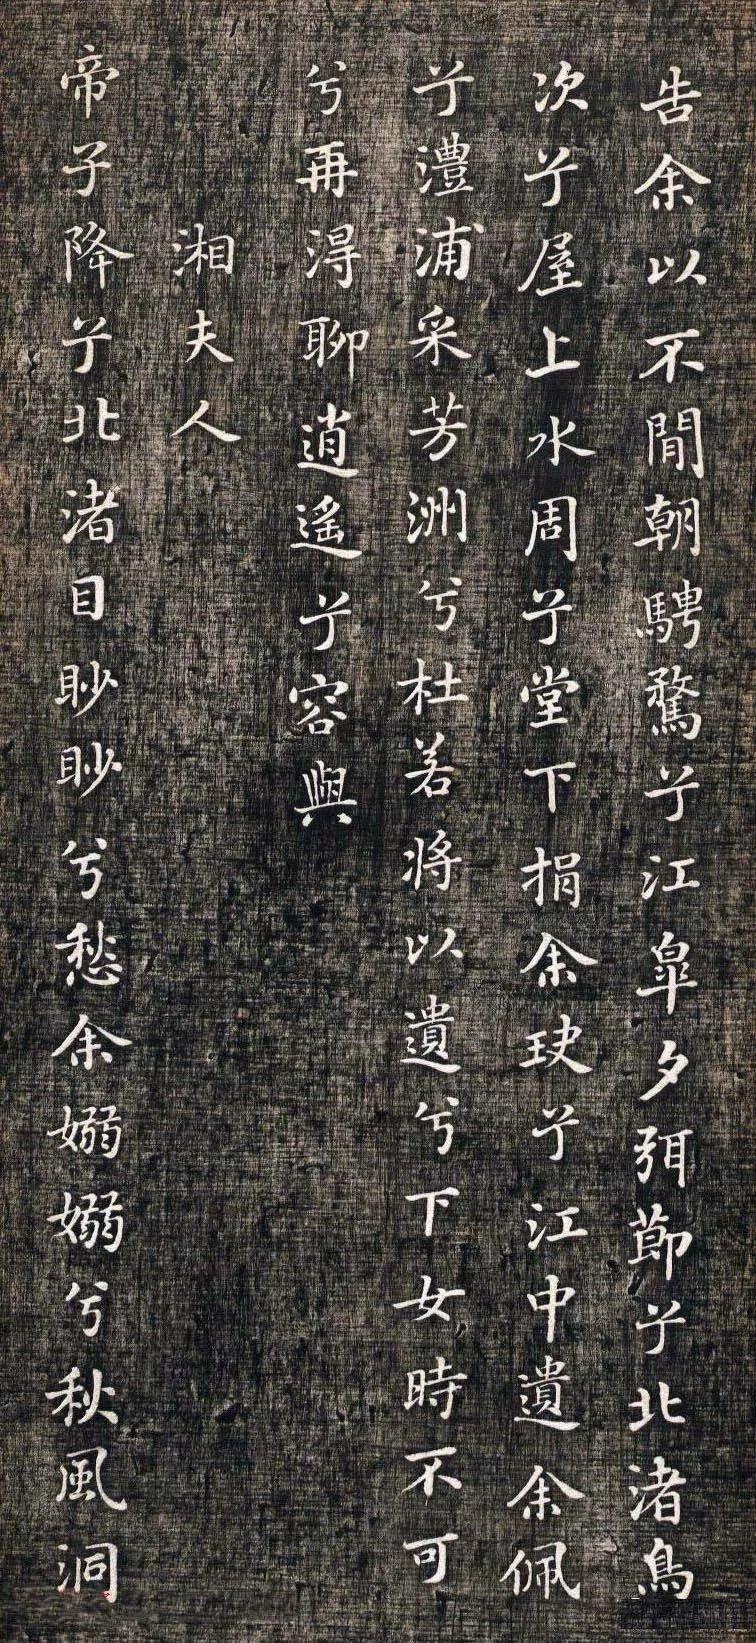 告余以不閒朝騁騖兮江皐夕弭節兮北渚鳥
次兮屋上水周兮堂下捐余玦兮江中遺余佩
兮澧浦采芳洲兮杜若將以遺兮下女時不可
兮再得聊逍遙兮容與
湘夫人
帝子降兮北渚目眇眇兮愁余嫋嫋兮秋風洞